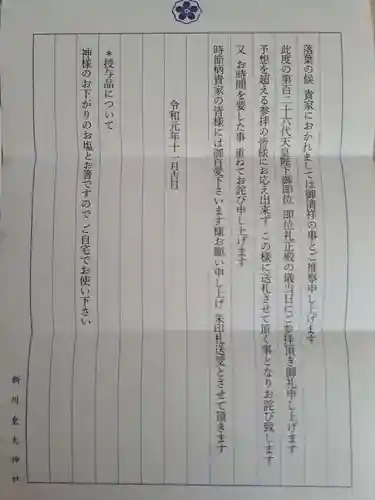 落葉の候 貴家におかれましては御清祥の事とご推察申し上げます
此度の第百二十六代天皇陛下御即位 即位礼正殿の儀当日にご参拝頂き御礼申し上げます
予想を超える参拝の皆様にお応え出来ず この様に送札させて頂く事となりお詫び致します
又 お時間を要した事 重ねてお詫び申し上げます
時節柄貴家の皆様には御自愛下さいます様お願い申し上げ 朱印札送愛とさせて頂きます
令和元年十一月吉日
＊授与品について
神様のお下がりのお塩とお箸ですので ご自宅でお使い下さい
新川皇大神社